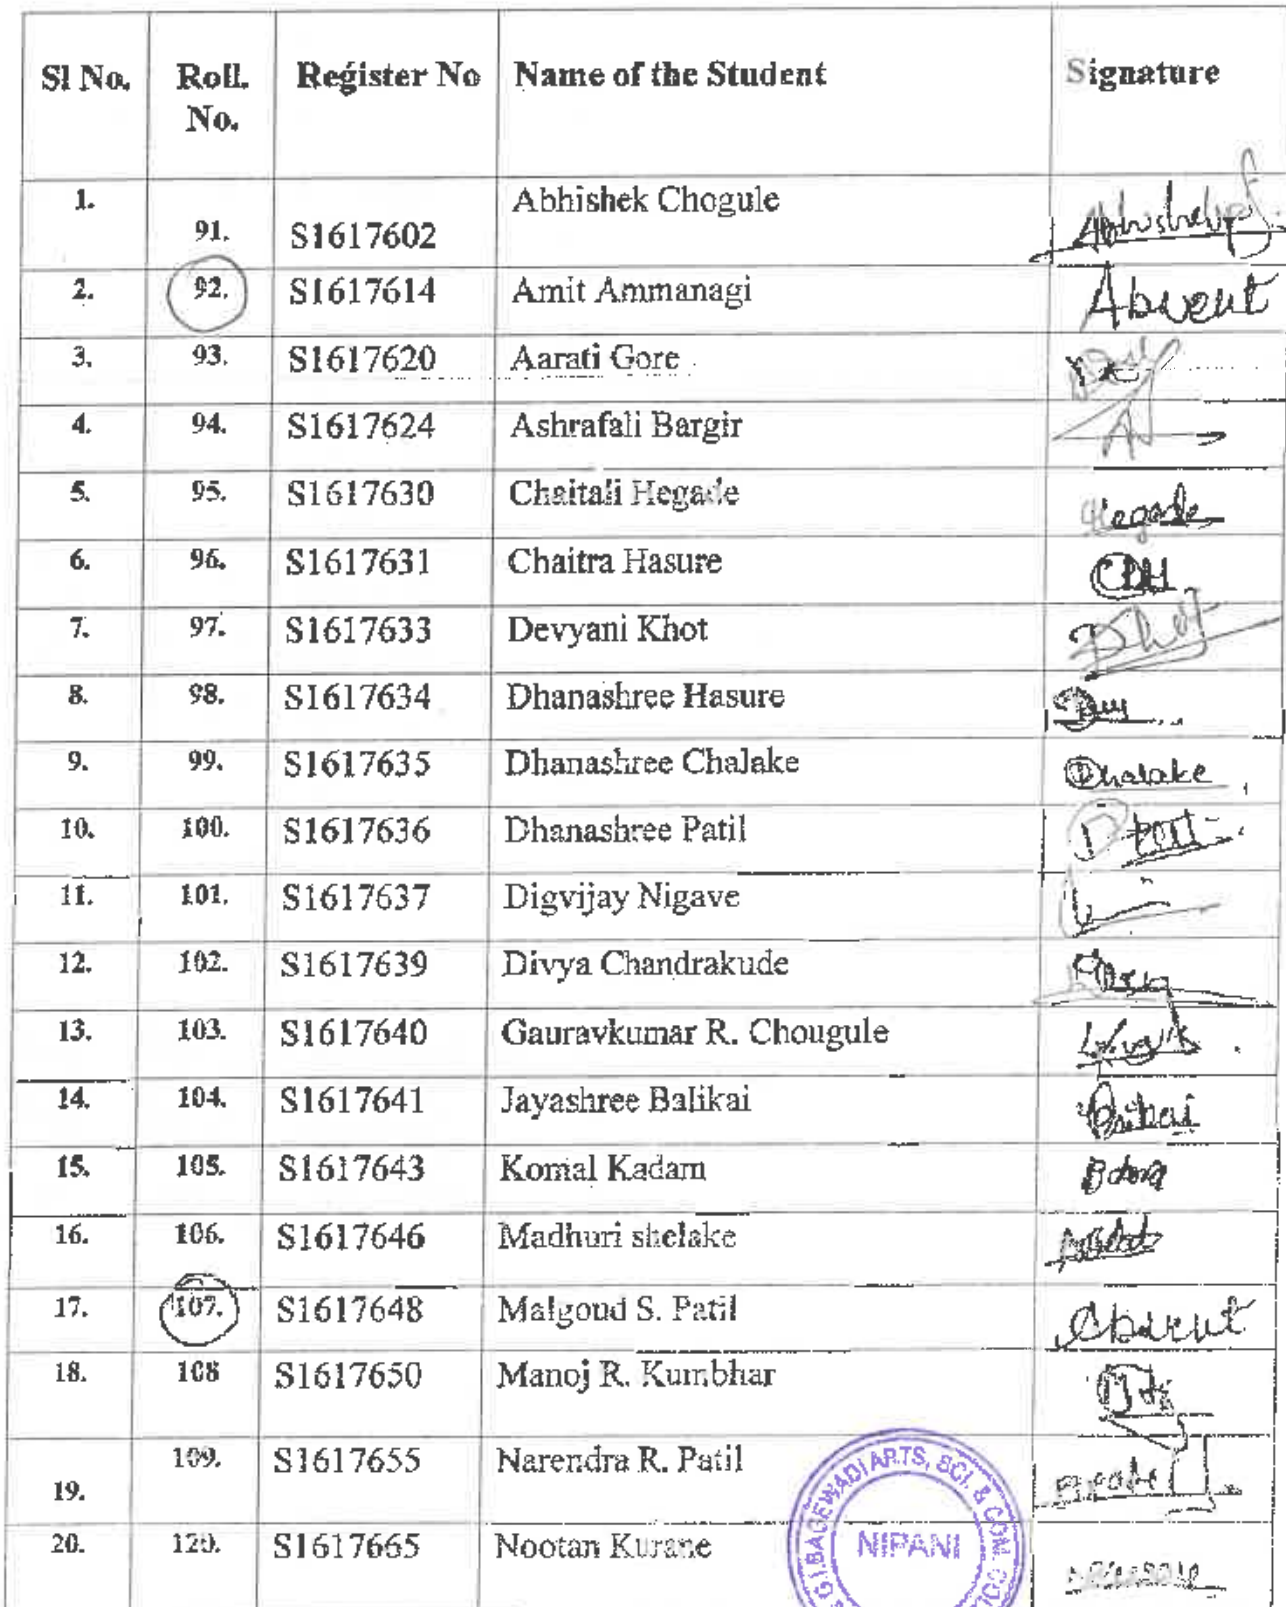 Sl No. Roll. No. Register No Name of the Student Signature
1. 91. S1617602 Abhishek Chogule
2. 92. S1617614 Amit Ammanagi Absent
3. 93. S1617620 Aarati Gore
4. 94. S1617624 Ashrafali Bargir
5. 95. S1617630 Chaitali Hegade Hegade
6. 96. S1617631 Chaitra Hasure CDH
7. 97. S1617633 Devyani Khot
8. 98. S1617634 Dhanashree Hasure
9. 99. S1617635 Dhanashree Chalake Dhalake
10. 100. S1617636 Dhanashree Patil
11. 101. S1617637 Digvijay Nigave
12. 102. S1617639 Divya Chandrakude
13. 103. S1617640 Gauravkumar R. Chougule
14. 104. S1617641 Jayashree Balikai
15. 105. S1617643 Komal Kadam
16. 106. S1617646 Madhuri shelake
17. 107. S1617648 Malgoud S. Patil Absent
18. 108 S1617650 Manoj R. Kumbhar
19. 109. S1617655 Narendra R. Patil
20. 120. S1617665 Nootan Kurane
G.I.BAGEWADI ARTS, SCI. & COM. COL
NIPANI